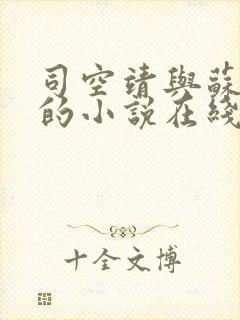 司空靖與蘇
的小說在綫
十全文博